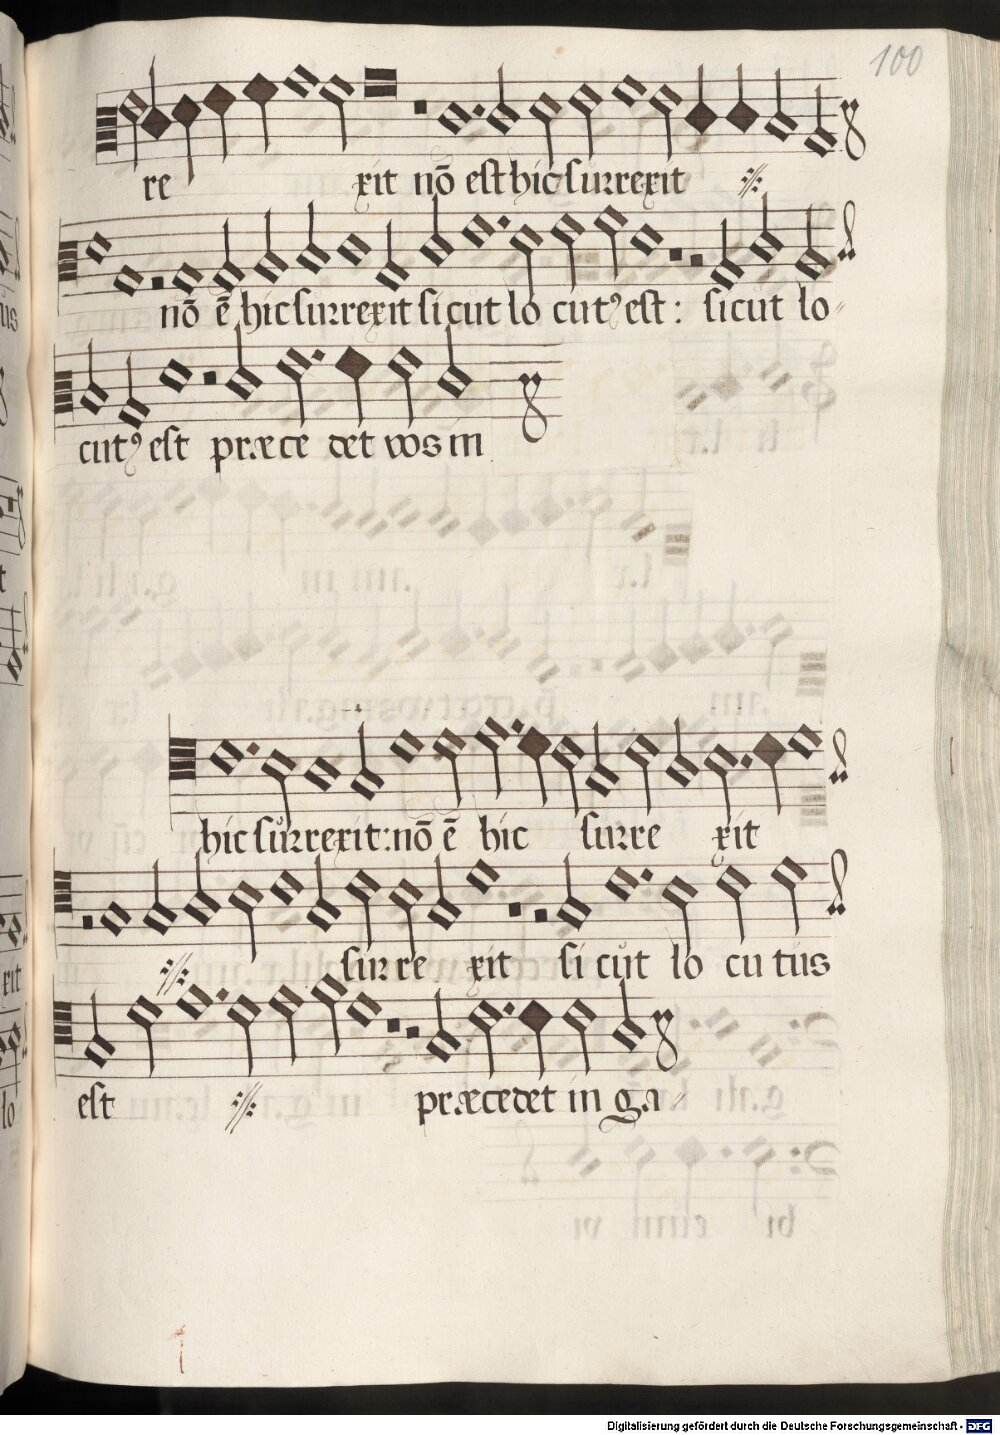 100
re xit nō est hic surrexit
nō ē hic surrexit sicut lo cutꝰ est: sicut lo-
cutꝰ est præce det vos in
hic surrexit: nō ē hic surre xit
surre xit si cut lo cu tus
est præcedet in ga-
Digitalisierung gefördert durch die Deutsche Forschungsgemeinschaft - DFG